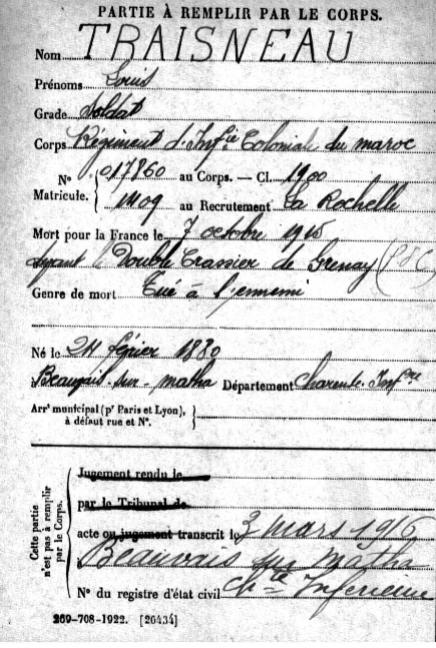 PARTIE À REMPLIR PAR LE CORPS.
Nom TRAISNEAU
Prénoms Louis
Grade Soldat
Corps Régiment d'Inf^ie Coloniale du maroc
N° 017860 au Corps. — Cl. 1900
Matricule. 1409 au Recrutement La Rochelle
Mort pour la France le 7 octobre 1915
devant le Double Crassier de Grenay (P d C)
Genre de mort Tué à l'ennemi
Né le 24 février 1880
Beauvais-sur-matha Département Charente Inf^re
Arr^t municipal (p^r Paris et Lyon),
à défaut rue et N°.
Cette partie
n'est pas à remplir
par le Corps.
Jugement rendu le
par le Tribunal de
acte ou jugement transcrit le 3 mars 1916
Beauvais sur Matha
N° du registre d'état civil Ch^te Inférieure
269-708-1922. [26434]